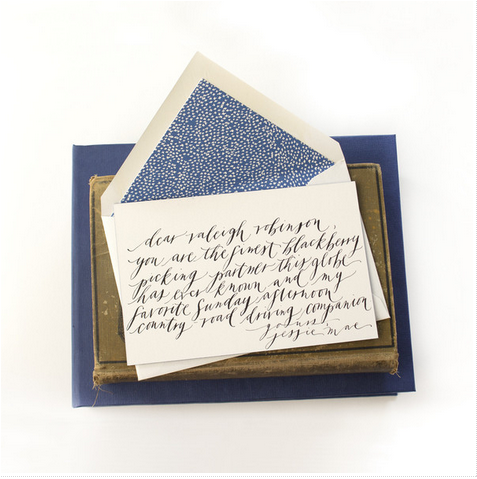 dear raleigh robinson,
you are the finest blackberry
picking partner this globe
has ever known and my
favorite Sunday afternoon
country road driving companion
yours,
jessie mae